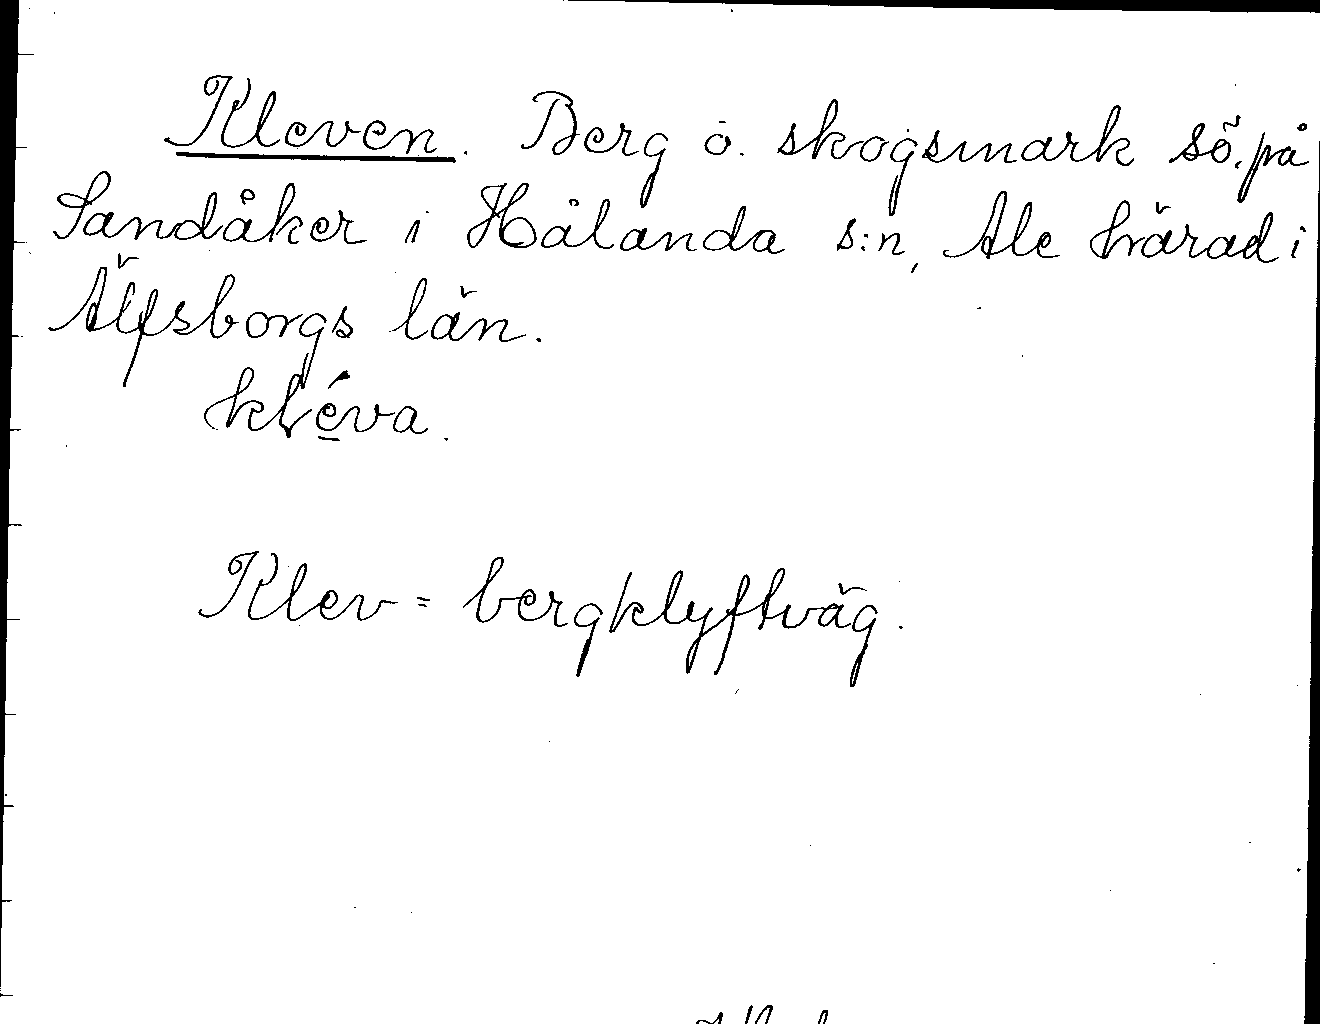 Kleven. Berg o. skogsmark sö. på
Sandåker i Hålanda s:n, Ale härad i
Älfsborgs län.
kléva.
Klev = bergklyftväg.